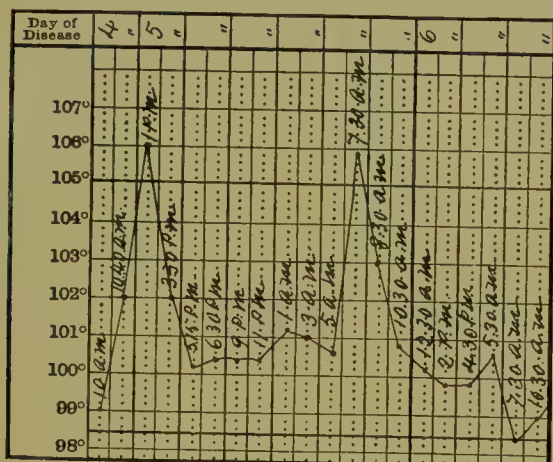 Day of Disease 4 " 5 " " " " " " 6 " " "
107°
106°
105°
104°
103°
102°
101°
100°
99°
98°
10 a.m
10.40 a.m
1 P.m
3.30 P.m
5.15 P.m
6.30 P.m
9 P.m
11 P.m
1 a.m
3 a.m
5 a.m
7.20 a.m
8.30 a.m
10.30 a.m
12.30 a.m
2 P.m
4.30 P.m
5.30 a.m
7.30 a.m
10.30 a.m